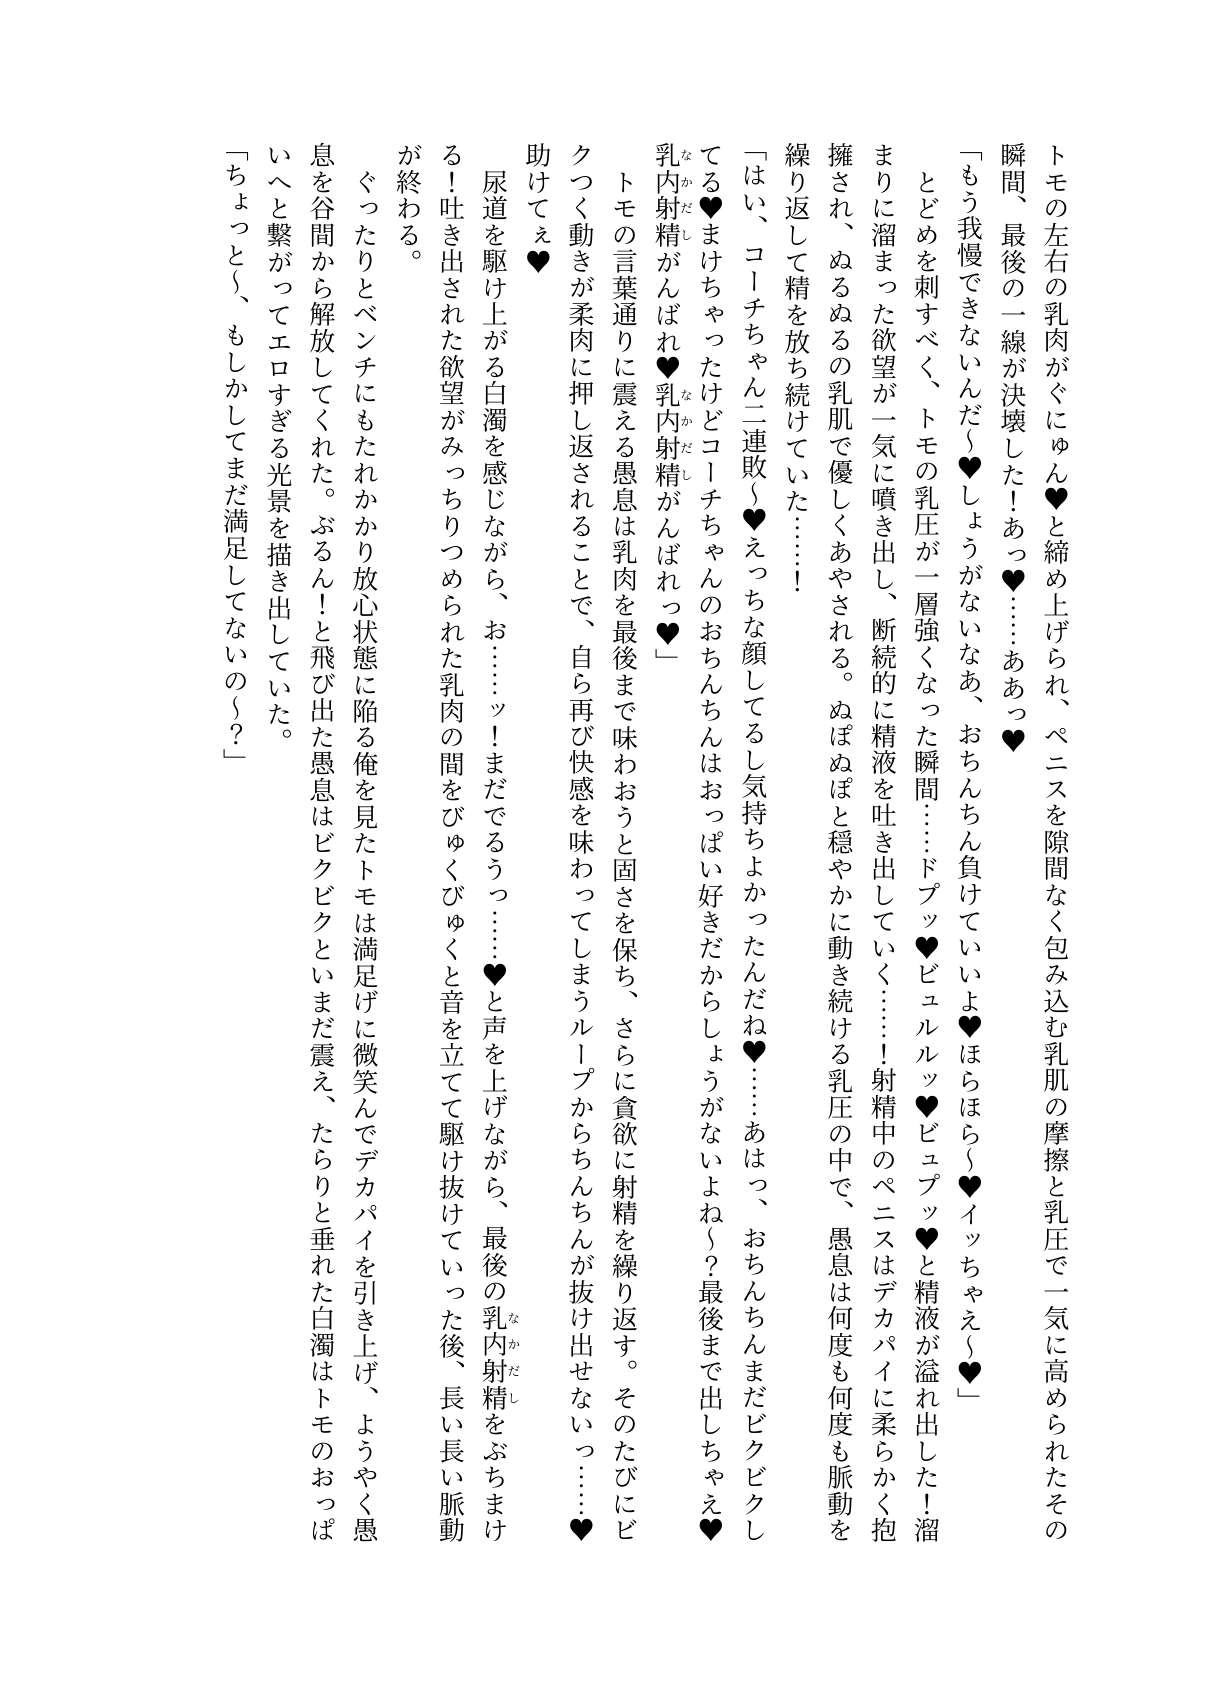 トモの左右の乳肉がぐにゅん♥と締め上げられ、ペニスを隙間なく包み込む乳肌の摩擦と乳圧で一気に高められたその
瞬間、最後の一線が決壊した！あっ♥……ああっ♥
「もう我慢できないんだ～♥しょうがないなあ、おちんちん負けていいよ♥ほらほら～♥イッちゃえ～♥」
　とどめを刺すべく、トモの乳圧が一層強くなった瞬間……ドプッ♥ビュルルッ♥ビュプッ♥と精液が溢れ出した！溜
まりに溜まった欲望が一気に噴き出し、断続的に精液を吐き出していく……！射精中のペニスはデカパイに柔らかく抱
擁され、ぬるぬるの乳肌で優しくあやされる。ぬぽぬぽと穏やかに動き続ける乳圧の中で、愚息は何度も何度も脈動を
繰り返して精を放ち続けていた……！
「はい、コーチちゃん二連敗～♥えっちな顔してるし気持ちよかったんだね♥……あはっ、おちんちんまだビクビクし
てる♥まけちゃったけどコーチちゃんのおちんちんはおっぱい好きだからしょうがないよね～？最後まで出しちゃえ♥
乳内射精がんばれ♥乳内射精がんばれっ♥」
　トモの言葉通りに震える愚息は乳肉を最後まで味わおうと固さを保ち、さらに貪欲に射精を繰り返す。そのたびにビ
クつく動きが柔肉に押し返されることで、自ら再び快感を味わってしまうループからちんちんが抜け出せないっ……♥
助けてぇ♥
　尿道を駆け上がる白濁を感じながら、お……ッ！まだでるうっ……♥と声を上げながら、最後の乳内射精をぶちまけ
る！吐き出された欲望がみっちりつめられた乳肉の間をびゅくびゅくと音を立てて駆け抜けていった後、長い長い脈動
が終わる。
　ぐったりとベンチにもたれかかり放心状態に陥る俺を見たトモは満足げに微笑んでデカパイを引き上げ、ようやく愚
息を谷間から解放してくれた。ぶるん！と飛び出た愚息はビクビクといまだ震え、たらりと垂れた白濁はトモのおっぱ
いへと繋がってエロすぎる光景を描き出していた。
「ちょっと～、もしかしてまだ満足してないの～？」